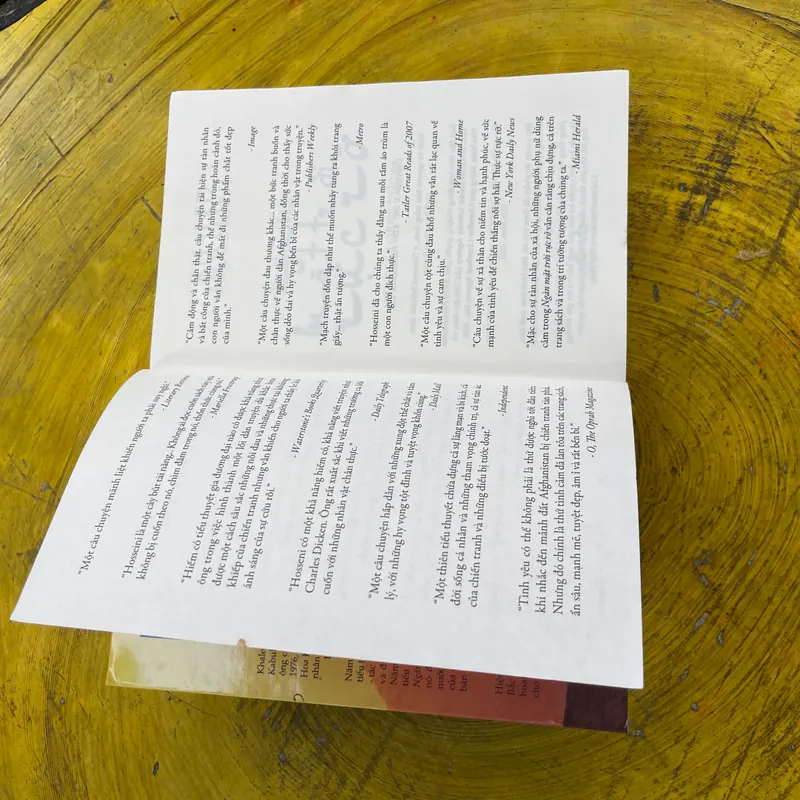 "Một câu chuyện mãnh liệt khiến người ta phải suy ngẫm."
- Literary Review
"Hosseini là một cây bút tài năng... Không ai đọc cuốn sách này mà
không bị cuốn theo nó, chìm đắm trong nó, thổn thức cùng nó."
"Hiếm có tiểu thuyết gia đương đại nào có được khả năng như
ông trong việc hình thành một lối dẫn truyện đủ khắc họa
được một cách sâu sắc những nỗi đau và những thực tại khủng
khiếp của chiến tranh nhưng vẫn khiến cho người ta thấy le lói
ánh sáng của sự cứu rỗi."
- Waterstone's Books Quarterly
"Hosseni có một khả năng hiếm có, khả năng viết truyện như
Charles Dicken. Ông rất xuất sắc khi viết những trường ca lôi
cuốn với những nhân vật chân thực."
- Daily Telegraph
"Một câu chuyện hấp dẫn với những xung đột thể chất và tâm
lý, với những hy vọng tột đỉnh và tuyệt vọng khôn cùng."
- Daily Mail
"Một thiên tiểu thuyết chứa đựng cả sự lãng mạn và bi kịch, cả
đời sống cá nhân và những tham vọng chính trị, cả sự tàn ác
của chiến tranh và những điều bị tước đoạt."
- Independent
"Tình yêu có thể không phải là thứ được nghĩ tới đầu tiên
khi nhắc đến mảnh đất Afghanistan bị chiến tranh tàn phá.
Nhưng đó chính là thứ tình cảm đã lan tỏa trên các trang sách,
ẩn sâu, mạnh mẽ, tuyệt đẹp, âm ỉ và rất bền bỉ.
- O, The Oprah Magazine
"Cảm động và chân thật, câu chuyện tái hiện sự tàn nhẫn
và bất công của chiến tranh, thế nhưng trong hoàn cảnh đó,
con người vẫn không để mất đi những phẩm chất tốt đẹp
của mình."
- Image
"Một câu chuyện đau thương khác... một bức tranh buồn và
chân thực về người dân Afghanistan, đồng thời cho thấy sức
sống dẻo dai và hy vọng bền bỉ của các nhân vật trong truyện."
- Publishers Weekly
"Mạch truyện dồn dập như thể muốn nhảy tung ra khỏi trang
giấy... thật ấn tượng."
- Metro
"Hosseini đã cho chúng ta thấy đằng sau mỗi tấm áo trùm là
một con người đích thực."
- Tatler Great Reads of 2007
"Một câu chuyện tột cùng đau khổ nhưng vẫn rất lạc quan về
tình yêu và sự cam chịu."
- Woman and Home
"Câu chuyện về sự xả thân cho niềm tin và hạnh phúc, về sức
mạnh của tình yêu để chiến thắng nỗi sợ hãi. Thực sự rực rỡ."
- New York Daily News
"Mặc cho sự tàn nhẫn của xã hội, những người phụ nữ dũng
cảm trong Ngàn mặt trời rực rỡ vẫn cắn răng chịu đựng, cả trên
trang sách và trong trí tưởng tượng của chúng ta."
- Miami Herald
1976,